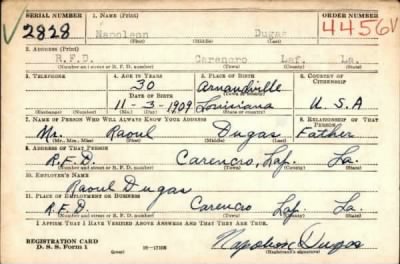 SERIAL NUMBER 1. NAME (Print) ORDER NUMBER
2828 Napoleon Dugas 4456
(First) (Middle) (Last)
2. ADDRESS (Print)
R.F.D. Carencro Laf. La.
(Number and street or R. F. D. number) (Town) (County) (State)
3. TELEPHONE 4. AGE IN YEARS 5. PLACE OF BIRTH 6. COUNTRY OF CITIZENSHIP
30 Arnaudville
DATE OF BIRTH (Town or county)
11-3-1909 Louisiana U.S.A
(Exchange) (Number) (Mo.) (Day) (Yr.) (State or country)
7. NAME OF PERSON WHO WILL ALWAYS KNOW YOUR ADDRESS 8. RELATIONSHIP OF THAT PERSON
Mr. Raoul Dugas Father
(Mr., Mrs., Miss) (First) (Middle) (Last)
9. ADDRESS OF THAT PERSON
R.F.D. Carencro, Laf. La.
(Number and street or R. F. D. number) (Town) (County) (State)
10. EMPLOYER'S NAME
Raoul Dugas
11. PLACE OF EMPLOYMENT OR BUSINESS
R.F.D. Carencro Laf. La.
(Number and street or R. F. D. number) (Town) (County) (State)
I AFFIRM THAT I HAVE VERIFIED ABOVE ANSWERS AND THAT THEY ARE TRUE.
REGISTRATION CARD
D. S. S. Form 1 (over) 16-17105 Napoleon Dugas
(Registrant's signature)